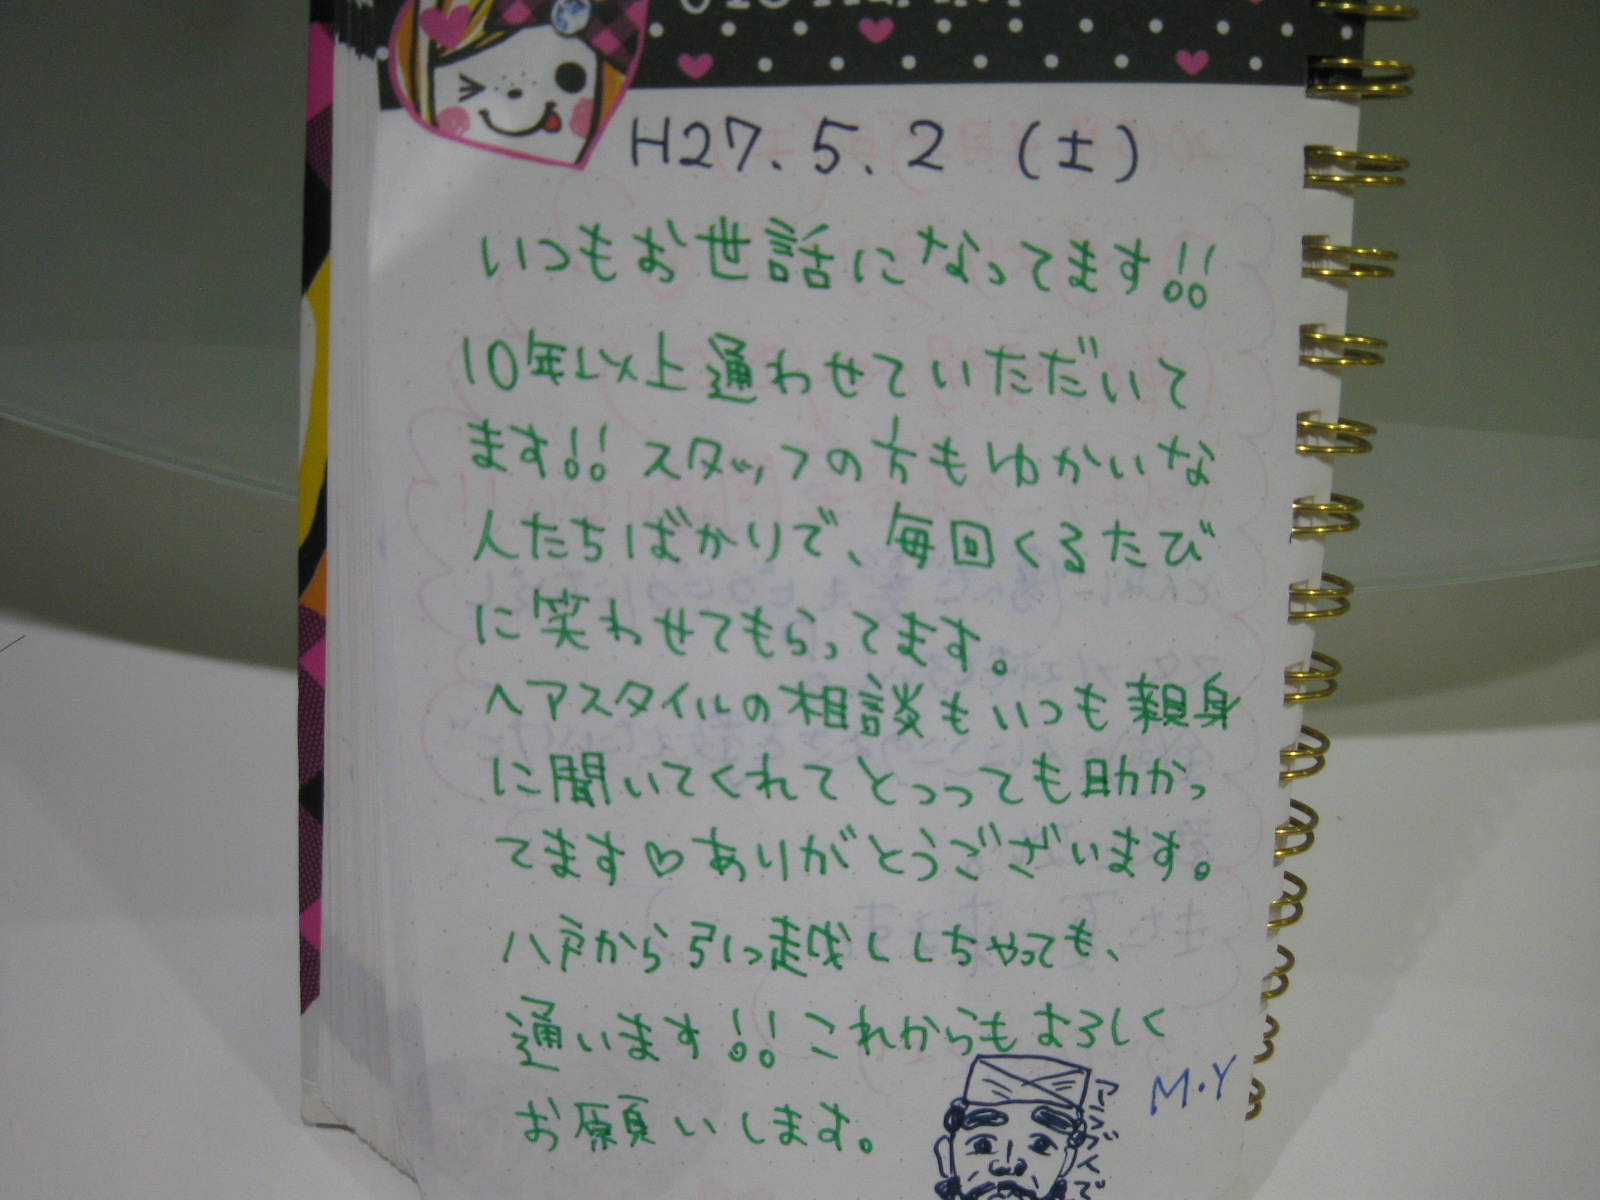 H27.5.2 (土)
いつもお世話になってます!!
10年以上通わせていただいて
ます!! スタッフの方もゆかいな
人たちばかりで、毎回くるたび
に笑わせてもらってます。
ヘアスタイルの相談もいつも親身
に聞いてくれてとっっても助かっ
てます♡ありがとうございます。
八戸から引っ越ししちゃっても、
通います!! これからもよろしく
お願いします。
M.Y